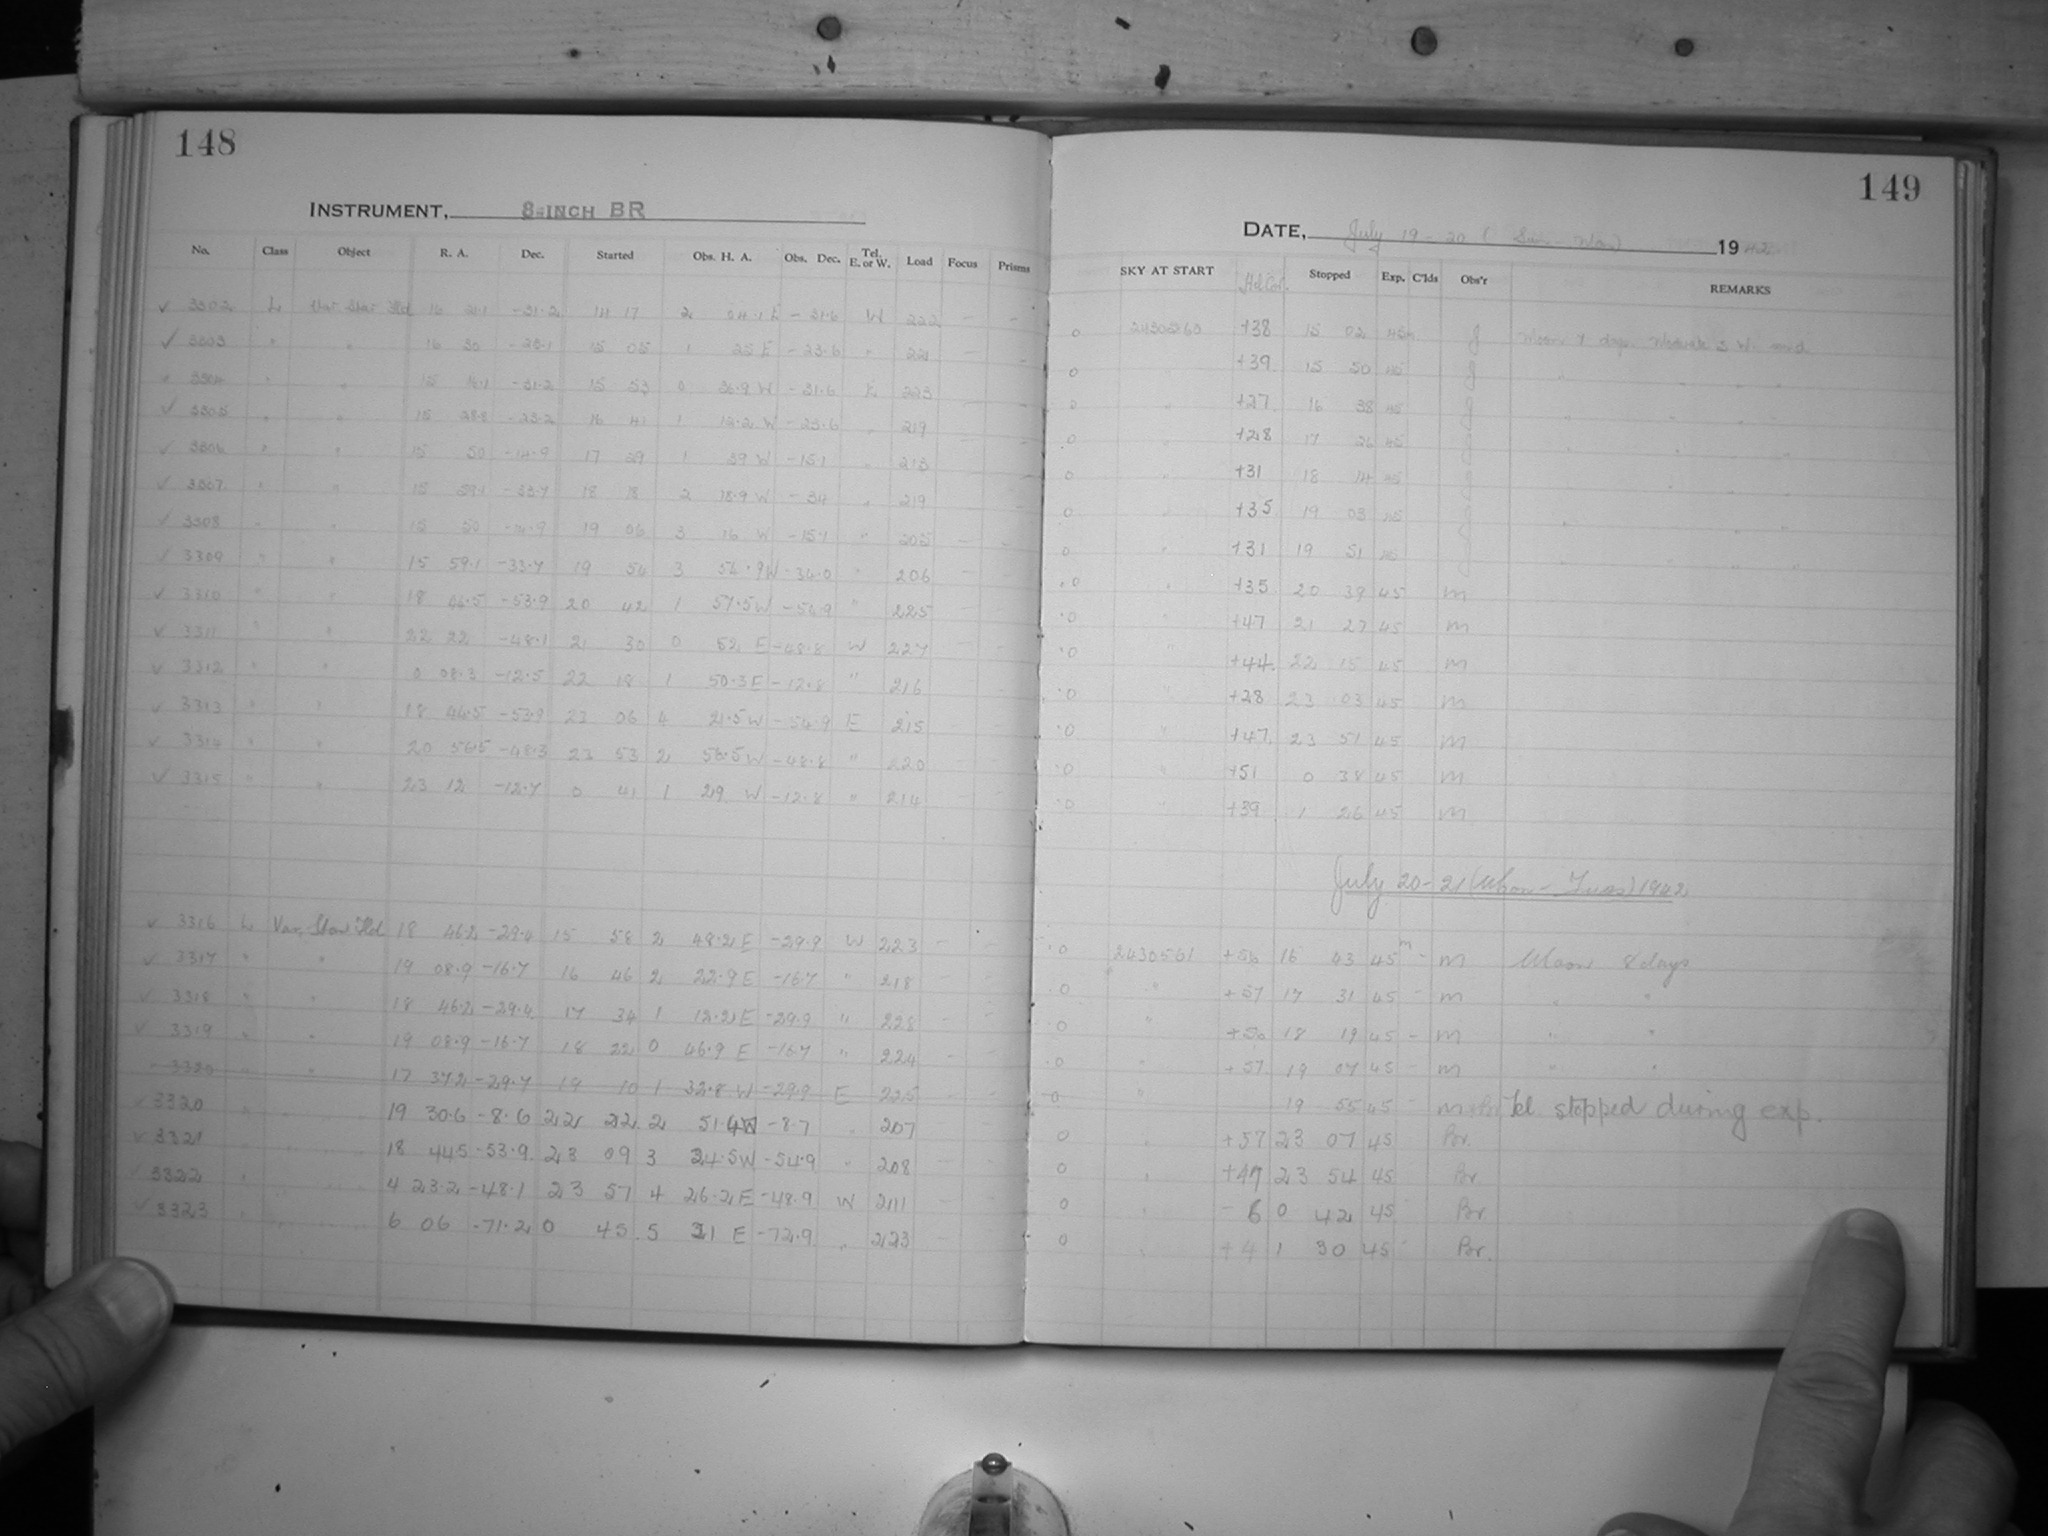 148
INSTRUMENT, 8-INCH BR
No. Class Object R. A. Dec. Started Obs. H. A. Obs. Dec. Tel. E. or W. Load Focus Prisms
✓ 3302 L Var Star Fld 16 21.1 -31.2 14 17 2 04.1 E -31.6 W 222 - -
✓ 3303 " " 16 30 15 05 1 25 E -23.6 " 221 - -
" 3304 " " 15 -31.2 15 53 0 36.9 W -31.6 E 223
✓ 3305 " " 15 28.8 -23.2 16 41 1 12.2 W -23.6 " 219
✓ 3306 " " 15 50 -14.9 17 29 1 39 W -15.1 " 213
✓ 3307 " " 15 59.1 -33.7 18 18 2 18.9 W -34 " 219
✓ 3308 " " 15 50 -14.9 19 06 3 16 W -15.1 " 205
✓ 3309 " " 15 59.1 -33.7 19 54 3 54.9 W -34.0 " 206
✓ 3310 " " 18 -53.9 20 42 1 57.5 W -54.9 " 225
✓ 3311 " " 22 22 -48.1 21 30 0 52 E -48.8 W 227
✓ 3312 " " 0 08.3 -12.5 22 18 1 50.3 E -12.8 " 216
✓ 3313 " " 18 44.5 -53.9 23 06 4 21.5 W -54.9 E 215
✓ 3314 " " 20 56.5 -48.3 23 53 2 56.5 W -48.8 " 220
✓ 3315 " " 23 12 -12.7 0 41 1 29 W -12.8 " 214
✓ 3316 L Var. Star Fld 18 46.2 -29.4 15 58 2 48.2 E -29.9 W 223 -
✓ 3317 " " 19 08.9 -16.7 16 46 2 22.9 E -16.7 " 218
✓ 3318 " " 18 46.2 -29.4 17 34 1 12.2 E -29.9 " 228
✓ 3319 " " 19 08.9 -16.7 18 22 0 46.9 E -16.7 " 224
3320 " " 17 37.2 -29.7 19 10 1 32.8 W -29.9 E 225
✓ 3320 19 30.6 -8.6 22 22 2 51.4 W -8.7 " 207
✓ 3321 18 44.5 -53.9 23 09 3 24.5 W -54.9 " 208
✓ 3322 4 23.2 -48.1 23 57 4 26.2 E -48.9 W 211
✓ 3323 6 06 -71.2 0 45 5 21 E -72.9 " 223
149
DATE, July 19-20 (Sun-Mon) 1942
SKY AT START Hel Cor. Stopped Exp. C'lds Obs'r REMARKS
0 2430560 +38 15 02 45m J Moon 7 days. Moderate S W. wind
0 +39 15 50 45 J " " " "
0 " +27 16 38 45 J " " "
0 " +28 17 26 45 J " " "
0 " +31 18 14 45 J " " "
0 " +35 19 03 45 J " " "
0 " +31 19 51 45 J " " "
0 " +35 20 39 45 m
0 " +47 21 27 45 m
0 " +44 22 15 45 m
0 " +28 23 03 45 m
0 " +47 23 51 45 m
0 " +51 0 38 45 m
0 " +39 1 26 45 m
July 20-21 (Mon-Tues) 1942
0 2430561 +56 16 43 45m - m Moon 8 days
0 " +57 17 31 45 - m " "
0 " +56 18 19 45 - m " "
0 " +57 19 07 45 - m " "
0 " 19 55 45 - Tel stopped during exp.
0 " +57 23 07 45 Br.
0 " +47 23 54 45 Br
0 " -6 0 42 45 Br.
0 +4 1 30 45 Br.